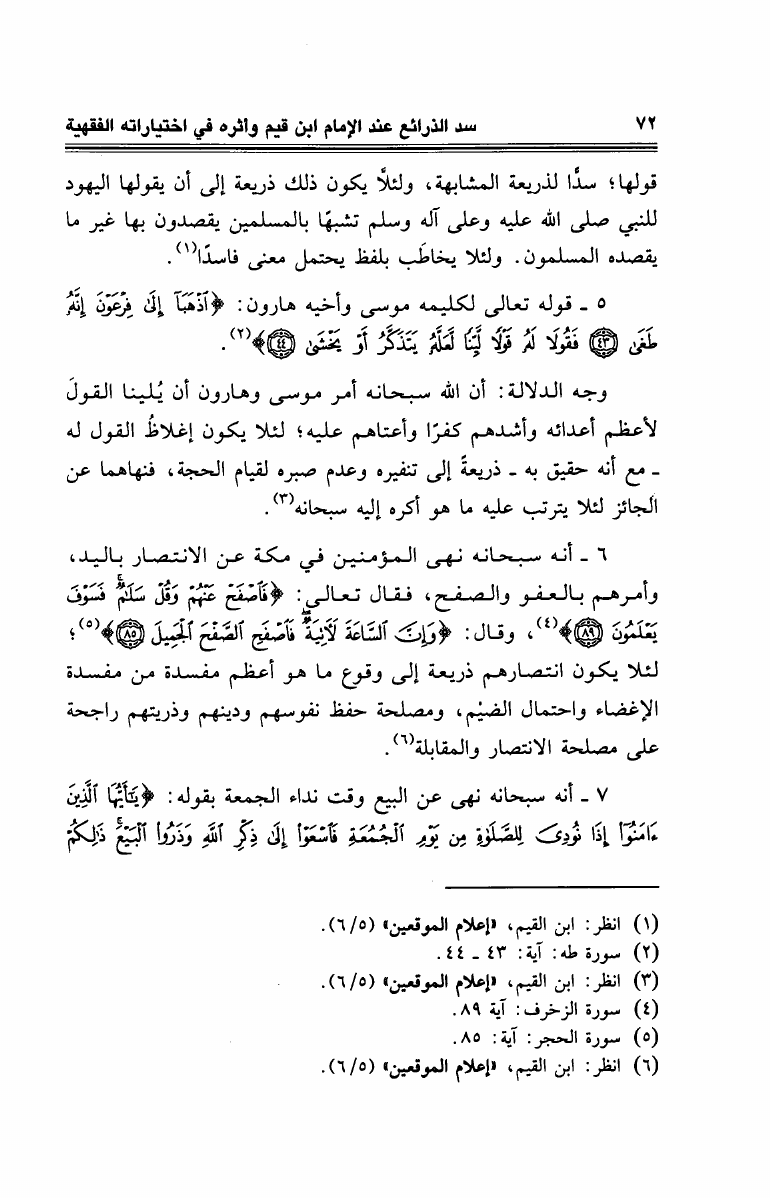 ٧٢ سد الذرائع عند الإمام ابن قيم وأثره في اختياراته الفقهية
قولها؛ سدًّا لذريعة المشابهة، ولئلَّا يكون ذلك ذريعة إلى أن يقولها اليهود
للنبي صلى الله عليه وعلى آله وسلم تشبهًا بالمسلمين يقصدون بها غير ما
يقصده المسلمون. ولئلا يخاطَب بلفظ يحتمل معنى فاسدًا(١).
٥ ـ قوله تعالى لكليمه موسى وأخيه هارون: ﴿ٱذْهَبَآ إِلَىٰ فِرْعَوْنَ إِنَّهُۥ
طَغَىٰ ٤٣ فَقُولَا لَهُۥ قَوْلًا لَّيِّنًا لَّعَلَّهُۥ يَتَذَكَّرُ أَوْ يَخْشَىٰ ٤٤﴾(٢).
وجه الدلالة: أن الله سبحانه أمر موسى وهارون أن يُلينا القولَ
لأعظم أعدائه وأشدهم كفرًا وأعتاهم عليه؛ لئلا يكون إغلاظُ القول له
ـ مع أنه حقيق به ـ ذريعةً إلى تنفيره وعدم صبره لقيام الحجة، فنهاهما عن
الجائز لئلا يترتب عليه ما هو أكره إليه سبحانه(٣).
٦ ـ أنه سبحانه نهى المؤمنين في مكة عن الانتصار باليد،
وأمرهم بالعفو والصفح، فقال تعالى: ﴿فَٱصْفَحْ عَنْهُمْ وَقُلْ سَلَٰمٌ ۚ فَسَوْفَ
يَعْلَمُونَ ٨٩﴾(٤)، وقال: ﴿وَإِنَّ ٱلسَّاعَةَ لَأٓتِيَةٌ ۖ فَٱصْفَحِ ٱلصَّفْحَ ٱلْجَمِيلَ ٨٥﴾(٥)؛
لئلا يكون انتصارهم ذريعة إلى وقوع ما هو أعظم مفسدة من مفسدة
الإغضاء واحتمال الضيْم، ومصلحة حفظ نفوسهم ودينهم وذريتهم راجحة
على مصلحة الانتصار والمقابلة(٦).
٧ ـ أنه سبحانه نهى عن البيع وقت نداء الجمعة بقوله: ﴿يَٰٓأَيُّهَا ٱلَّذِينَ
ءَامَنُوٓا۟ إِذَا نُودِىَ لِلصَّلَوٰةِ مِن يَوْمِ ٱلْجُمُعَةِ فَٱسْعَوْا۟ إِلَىٰ ذِكْرِ ٱللَّهِ وَذَرُوا۟ ٱلْبَيْعَ ۚ ذَٰلِكُمْ
(١) انظر: ابن القيم، «إعلام الموقعين» (٦/٥).
(٢) سورة طه: آية: ٤٣ ـ ٤٤.
(٣) انظر: ابن القيم، «إعلام الموقعين» (٦/٥).
(٤) سورة الزخرف: آية ٨٩.
(٥) سورة الحجر: آية: ٨٥.
(٦) انظر: ابن القيم، «إعلام الموقعين» (٦/٥).